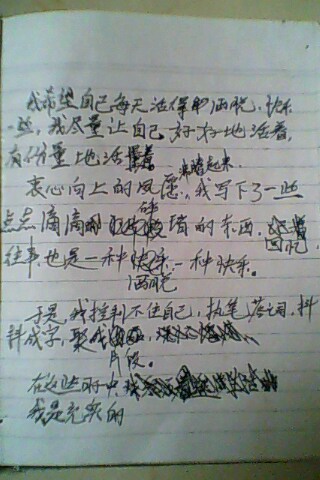 我希望自己每天活得即洒脱、快乐
一些,我尽量让自己好好地活着,
有份量地活着 来踏起来.
衷心向上的夙愿,我写下了一些
点点滴滴 的东西. 回忆
往事也是一种快乐.一种快乐。
洒脱
于是,我控制不住自己,执笔,落词.抖
抖成字,聚成
片段。
在这些时中
我是充实的